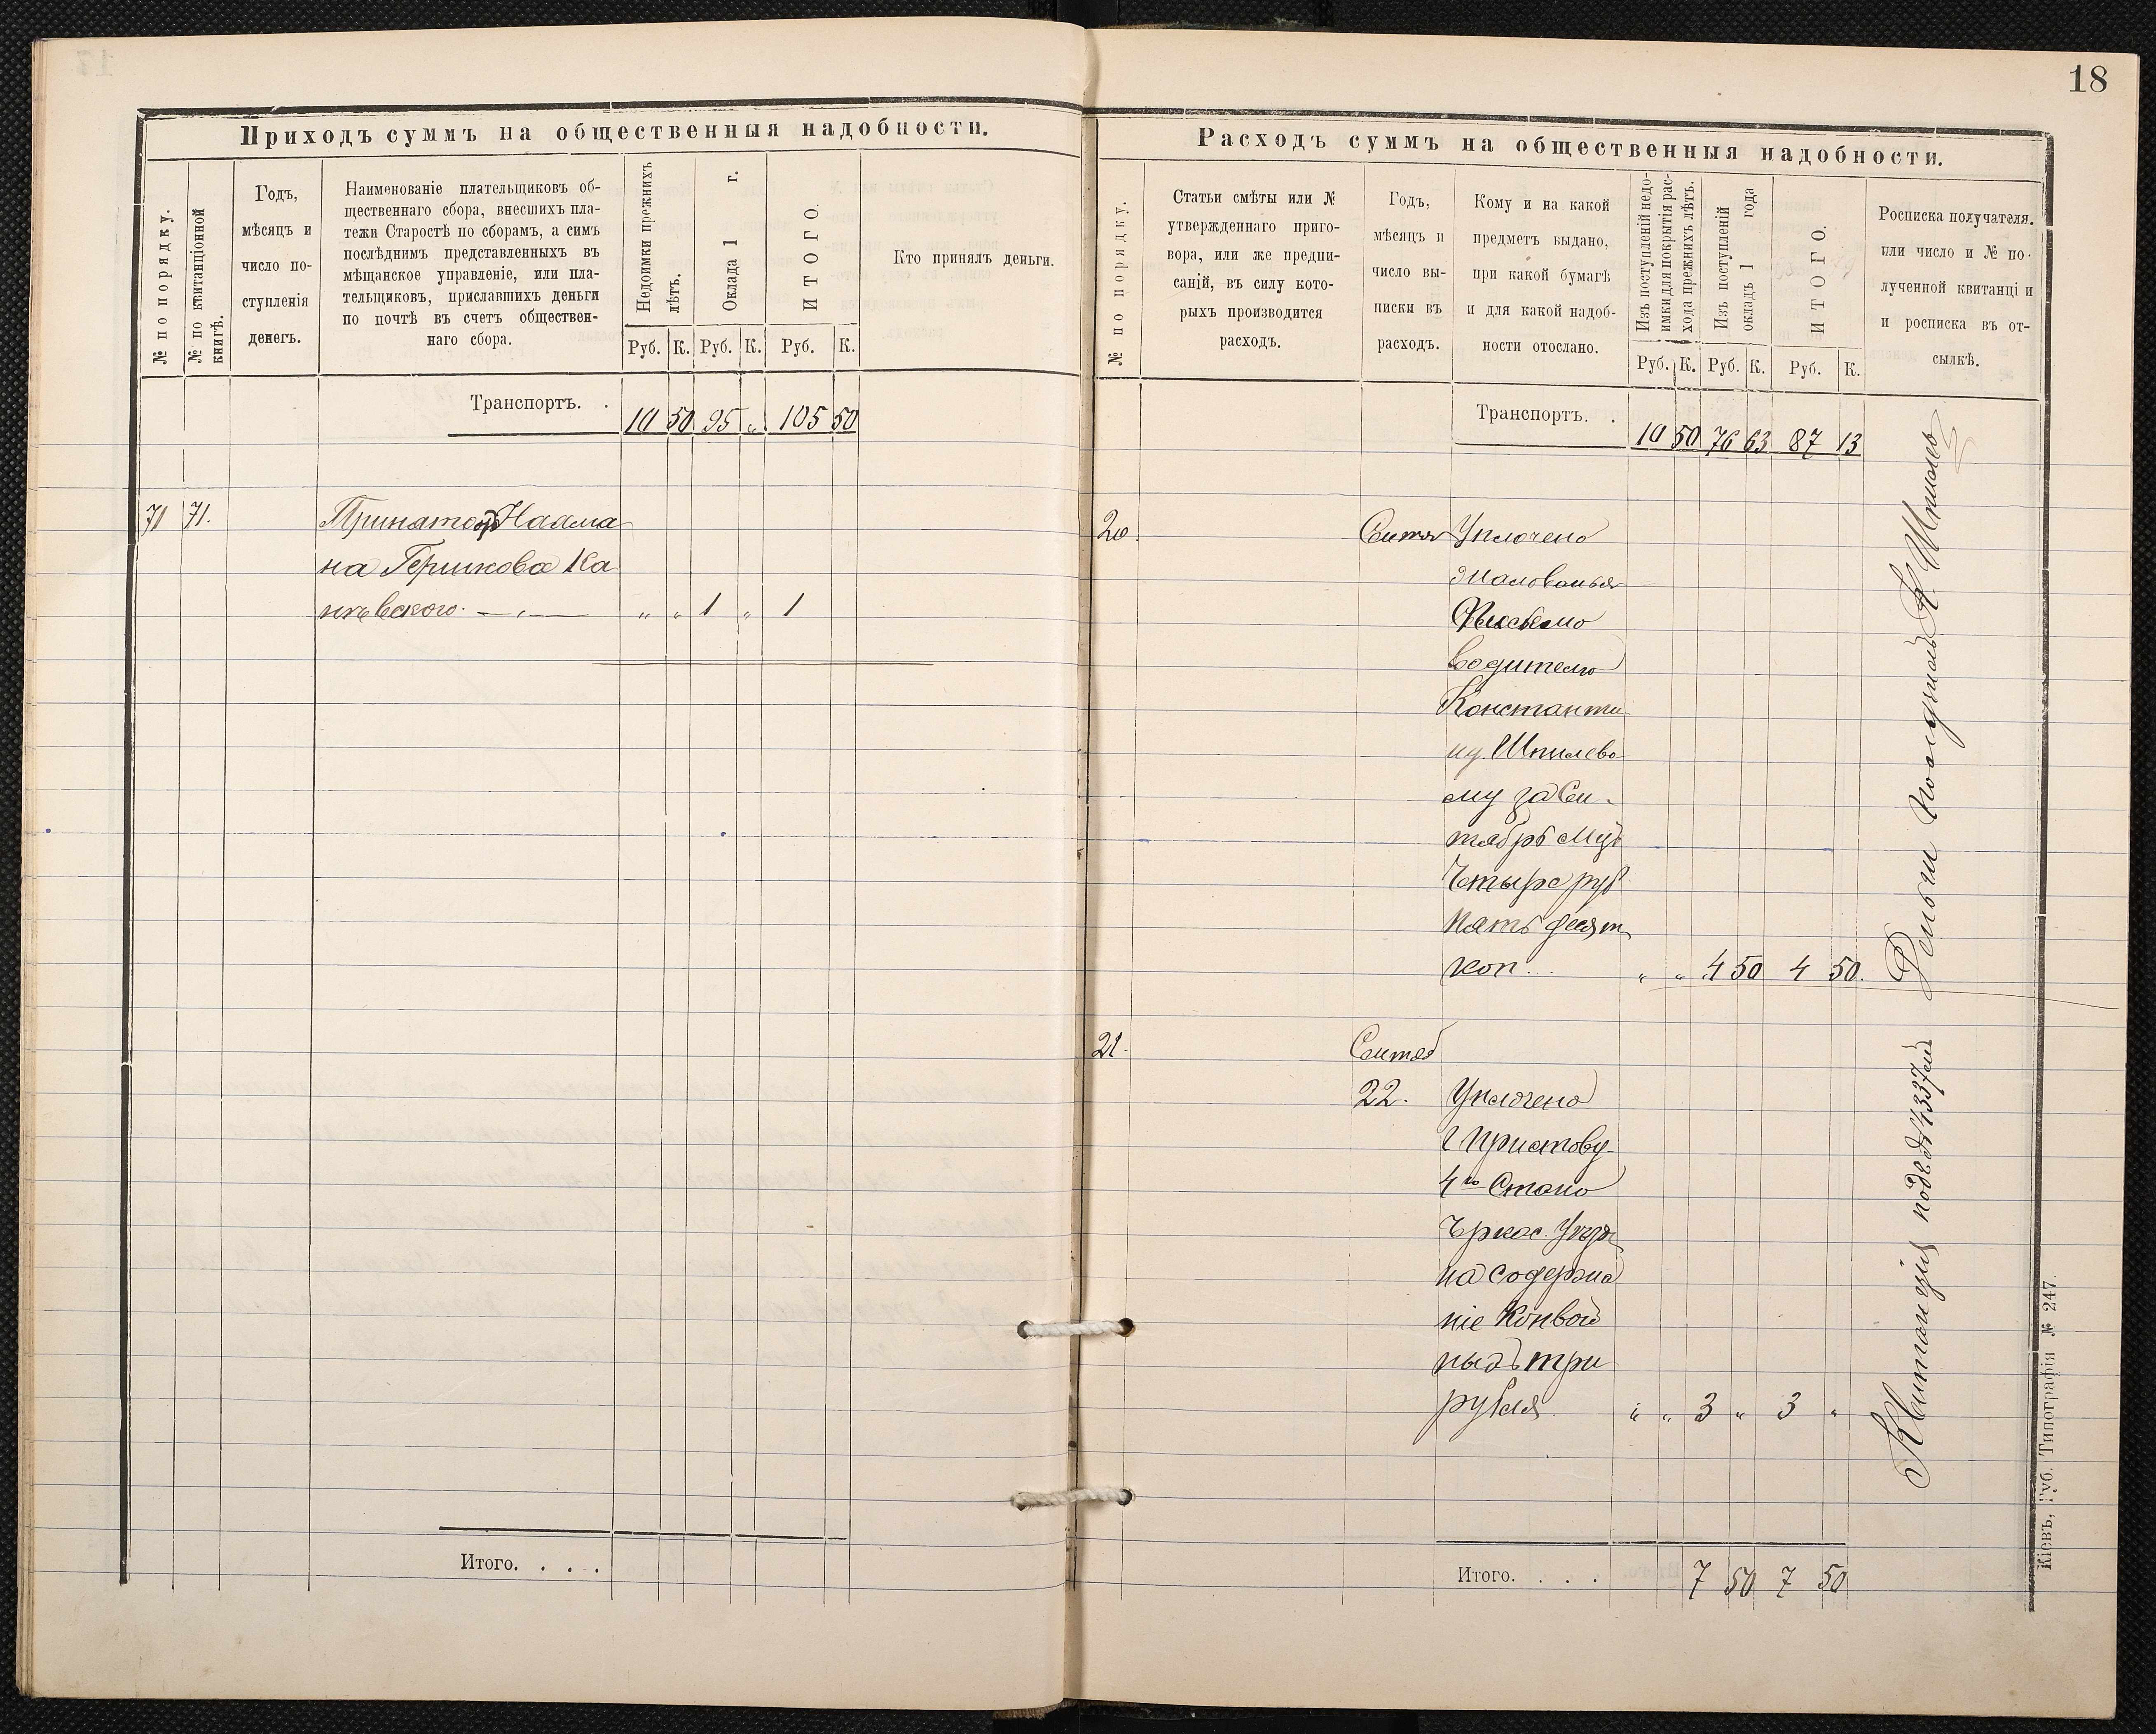 18
Приходъ суммъ на общественныя надобности.
№ по порядку.
№ по квитанціонной
книгѣ.
Годъ,
мѣсяцъ и
число по-
ступленія
денегъ.
Наименованіе плательщиковъ об-
щественнаго сбора, внесшихъ пла-
тежи Старостѣ по сборамъ, а симъ
послѣднимъ представленныхъ въ
мѣщанское управленіе, или пла-
тельщиковъ, приславшихъ деньги
по почтѣ въ счетъ обществен-
наго сбора.
Недоимки прежнихъ
лѣтъ.
Оклада 1 г.
ИТОГО.
Кто принялъ деньги.
Руб. К. Руб. К. Руб. К.
Транспортъ. .
10 50 95 „ 105 50
71 71. Принято Наама
на Гершкова Ка
невского. „ „ 1 „ 1
Итого. . . .
Расходъ суммъ на общественныя надобности.
№ по порядку.
Статьи смѣты или №
утвержденнаго приго-
вора, или же предпи-
саній, въ силу кото-
рыхъ производится
расходъ.
Годъ,
мѣсяцъ и
число вы-
писки въ
расходъ.
Кому и на какой
предметъ выдано,
при какой бумагѣ
и для какой надоб-
ности отослано.
Изъ поступленій недо-
имки для покрытія рас-
хода прежнихъ лѣтъ.
Изъ поступленій
окладъ 1 года
ИТОГО.
Росписка получателя.
или число и № по-
лученной квитанці и
и росписка въ от-
сылкѣ.
Руб. К. Руб. К. Руб. К.
Транспортъ. .
10 50 76 63 87 13
20. Сентяб Уплочено
жалованья
Письмо
водителю
Константи
ну Шпилево
му за Сен-
тябрь Мцъ
Четыре руб
пять десят
коп... „ „ 4 50 4 50.
Деньги получилъ К. Шпилев
21. Сентяб
22. Уплочено
Г Приставу
4го Стано
Черкас. Уѣзда
на содержа
ніе Конвой
ныхъ три
рубля. „ „ 3 „ 3 „
Квитанція подъ № 4337
Итого. . . .
7 50 7 50
Кіевъ, Губ. Типографія № 247.